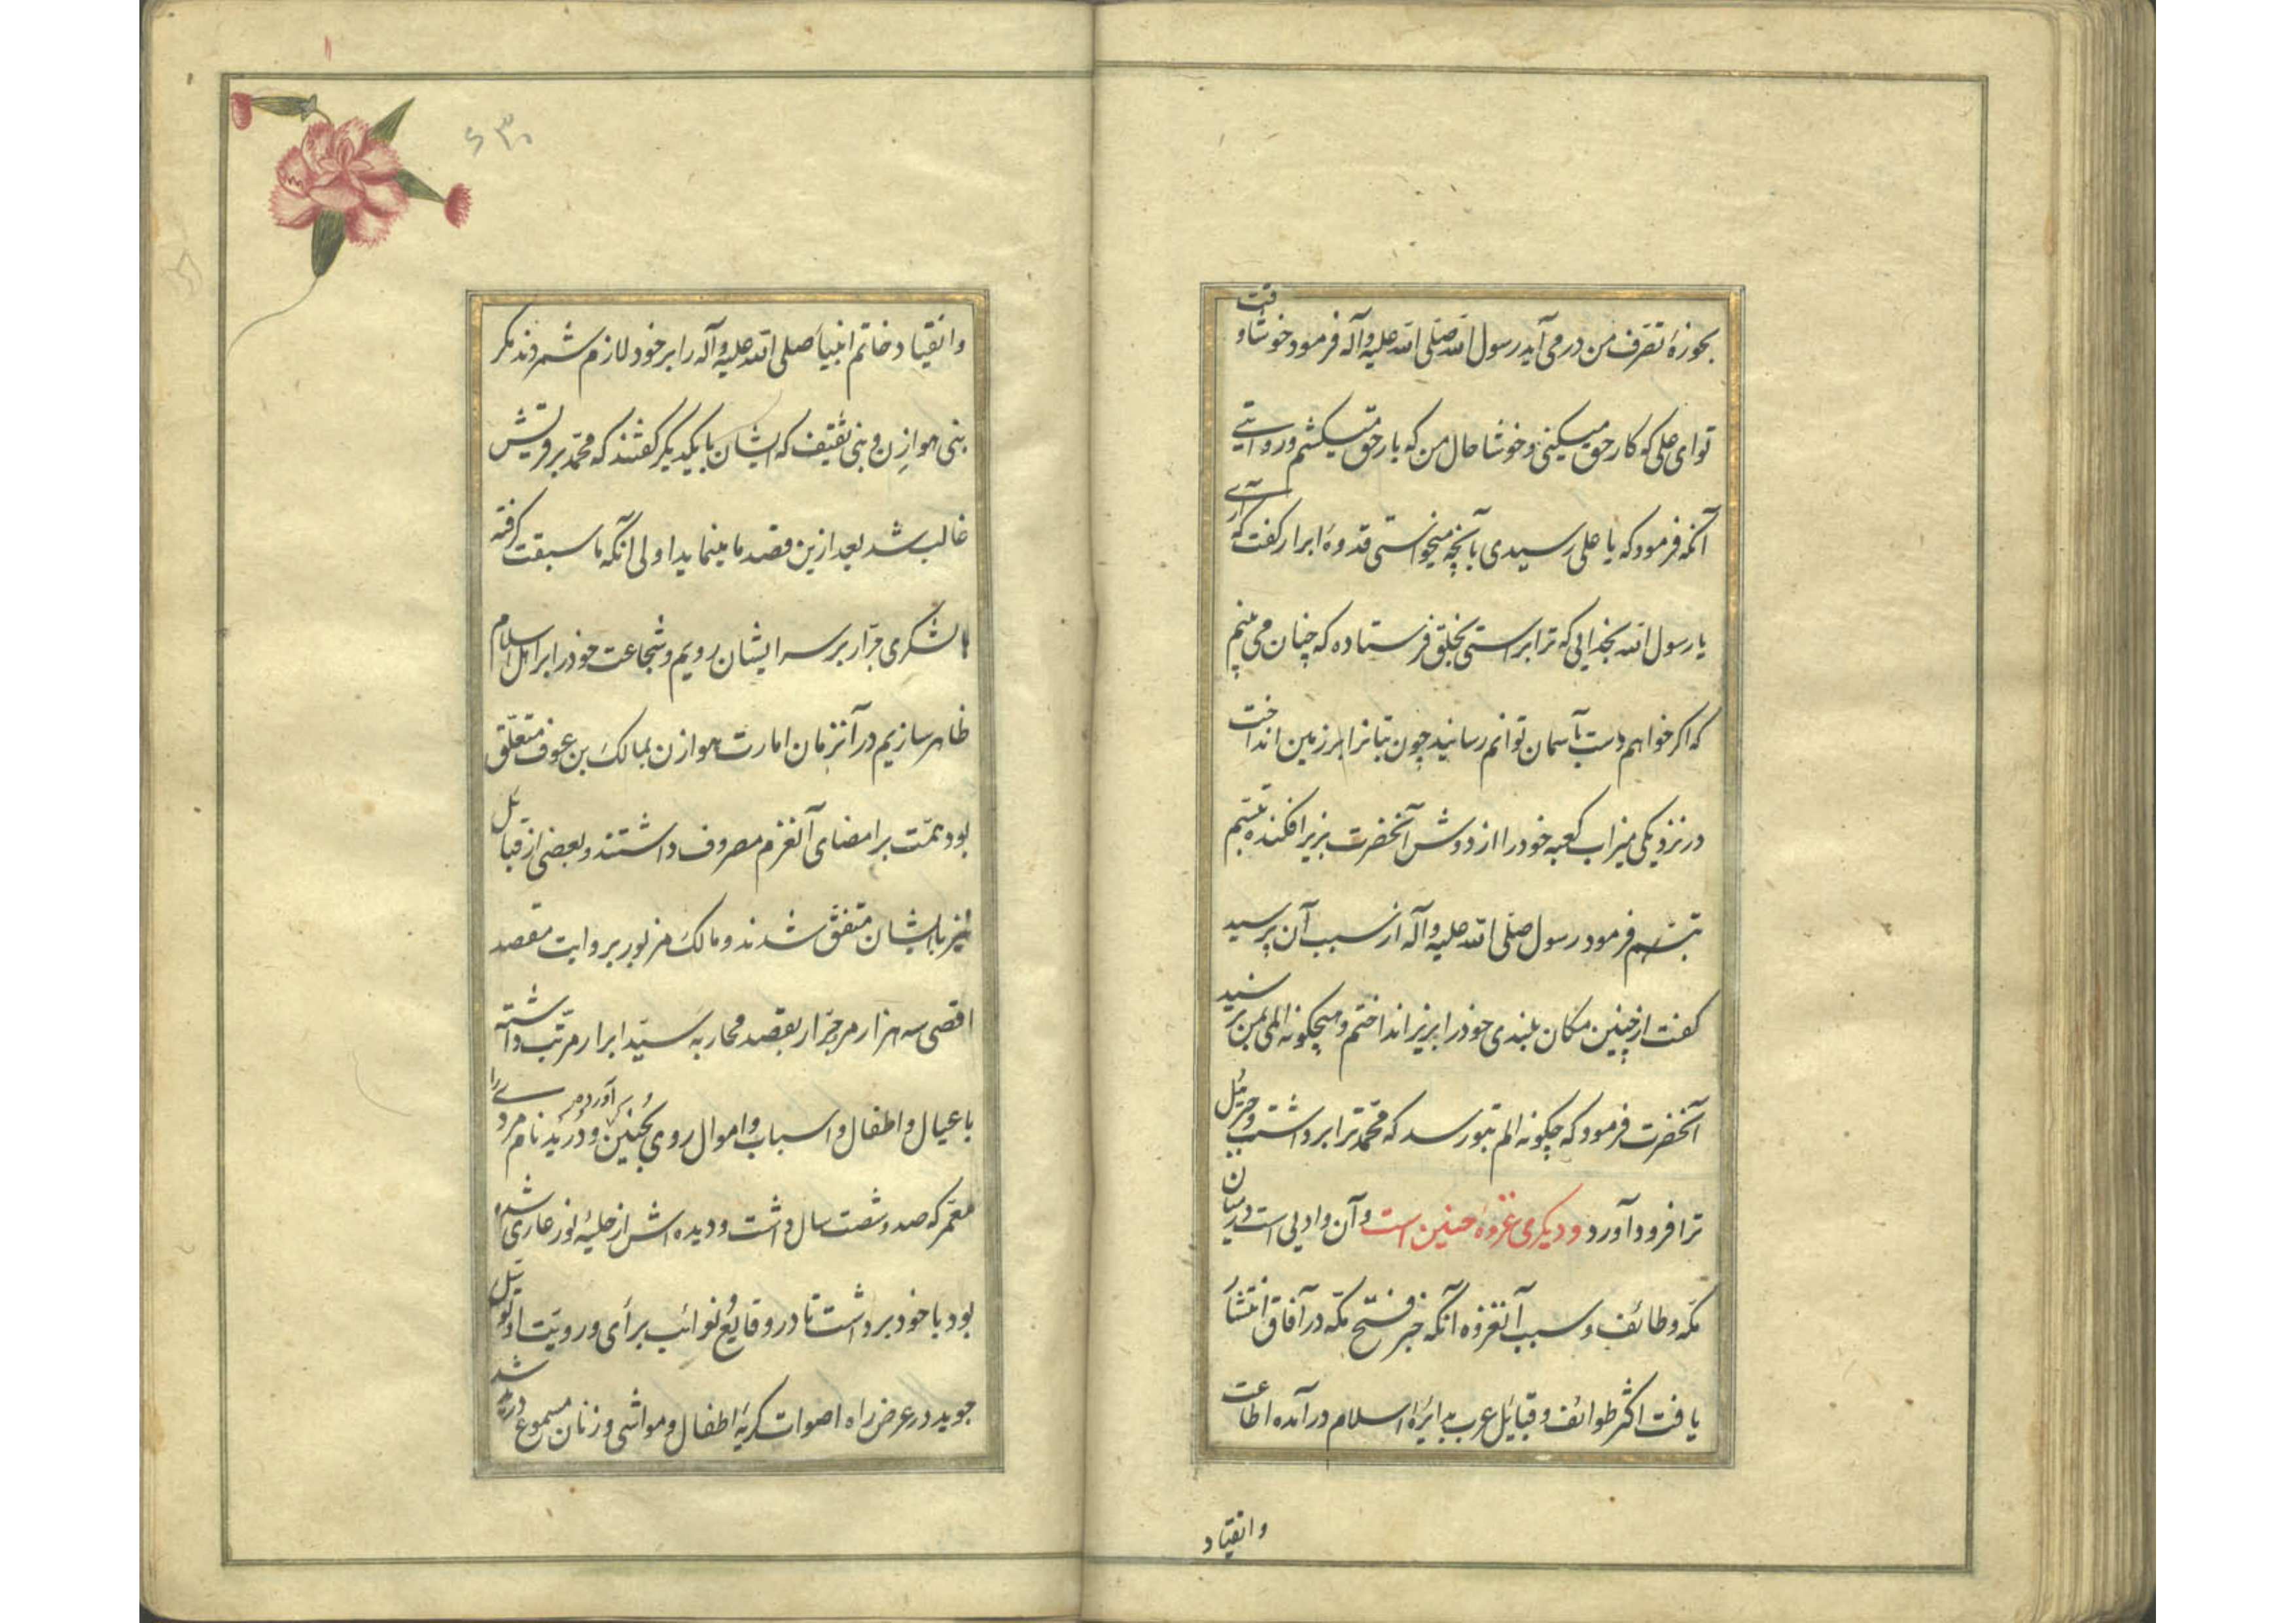 بحوزهٔ تصرف من درمی آید رسول الله صلی الله علیه وآله فرمود خوشا وقت
تو ای علی که کار حق میکنی و خوشا حال من که بار حق میکشم و روایتی
آنکه فرمود که یا علی رسیدی بآنچه میخواستی قدوهٔ ابرار گفت که آری
یا رسول الله بخدایی که ترا براستی بخلق فرستاده که چنان می بینم
که اگر خواهم دست بآسمان توانم رسانید چون بتانرا بر زمین انداخت
در نزدیکی میزاب کعبه خود را از دوش آنحضرت بزیر افکنده تبسم
تبسم فرمود رسول صلی الله علیه وآله از سبب آن پرسید
گفت از چنین مکان بلندی خود را بزیر انداختم و هیچگونه المی بمن نرسید
آنحضرت فرمود که چگونه الم بتو رسد که محمد ترا برداشت و جبرئیل
ترا فرود آورد و دیگری غزوهٔ حنین است و آن وادیی است در میان
مکه و طائف و سبب آنغزوه آنکه خبر فتح مکه در آفاق انتشار
یافت اکثر طوائف و قبایل عرب بدایرهٔ اسلام درآمده اطاعت
وانقیاد
۶۳۰
وانقیاد خاتم انبیا صلی الله علیه وآله را بر خود لازم شمردند مگر
بنی هوازن و بنی ثقیف که ایشان با یکدیگر گفتند که محمد بر قریش
غالب شد بعد ازین قصد ما مینماید اولی آنکه ما سبقت گرفته
با لشکری جرار بر سر ایشان رویم و شجاعت خود را بر اهل اسلام
ظاهر سازیم در آنزمان امارت هوازن بمالک بن عوف متعلق
بود همت بر امضای آنعزم مصروف داشتند و بعضی از قبائل
نیز با ایشان متفق شدند و مالک مزبور بروایت مقصد
اقصی سه هزار مرد جرار بقصد محاربه سید ابرار مرتب داشته
با عیال و اطفال و اسباب و اموال روی بحنین آوردند و درید نام مردی را
معمر که صد و شصت سال داشت و دیده اش از حلیهٔ نور عاری شده
بود با خود برداشت تا در وقایع و نوائب برای و رویت او توسل
جوید در عرض راه اصوات گریهٔ اطفال و مواشی و زنان مسموع درید شد